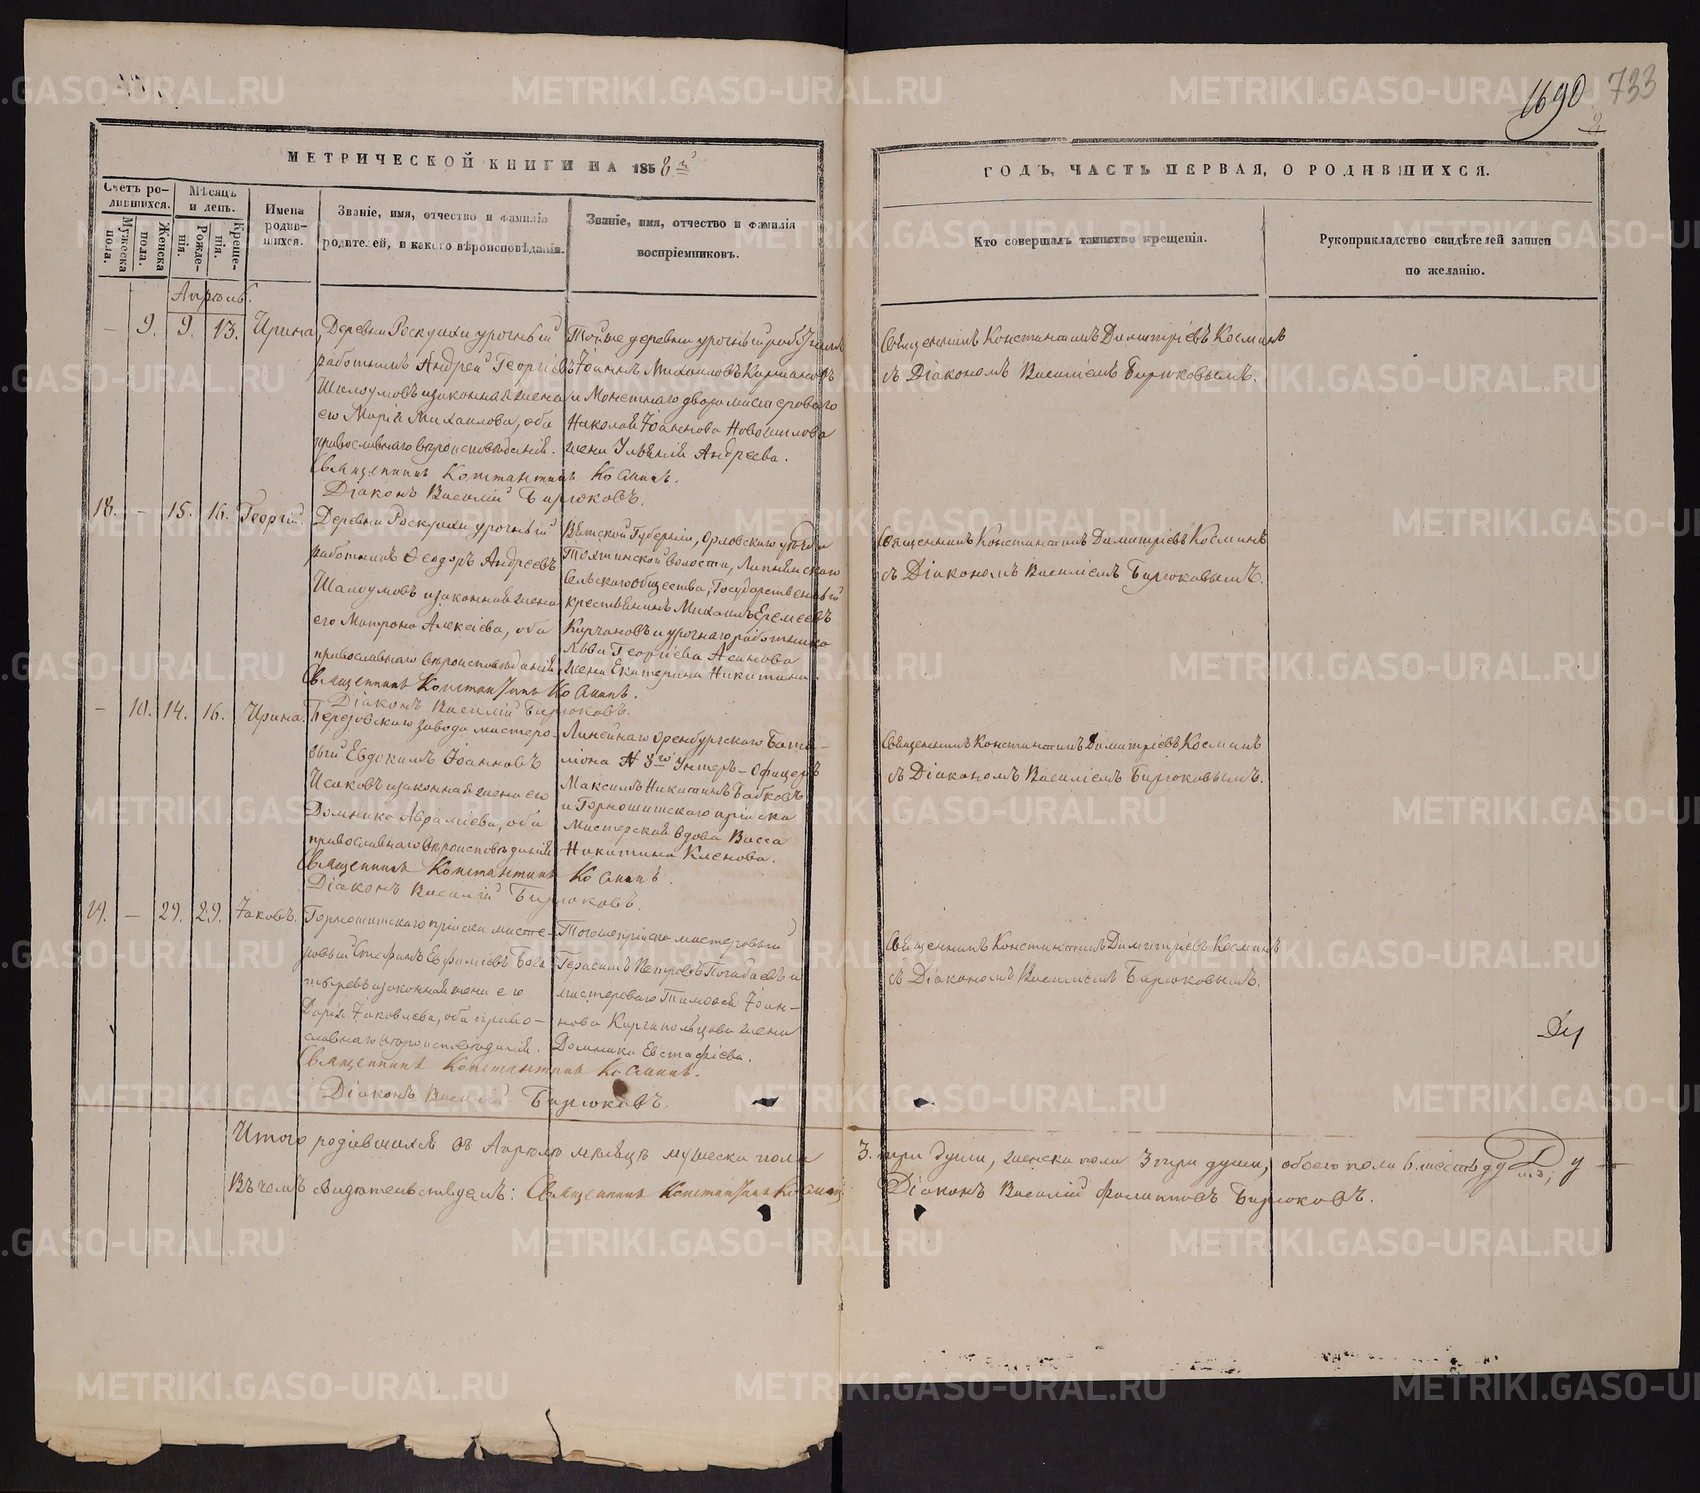 1690
733
МЕТРИЧЕСКОЙ КНИГИ НА 1858й
ГОДЪ, ЧАСТЬ ПЕРВАЯ, О РОДИВШИХСЯ.
Счетъ ро-
дившихся.
Мужеска
пола.
Женска
пола.
Мѣсяцъ
и день.
Рожде-
нія.
Креще-
нія.
Имена
родив-
шихся.
Званіе, имя, отчество и фамилія
родителей, и какого вѣроисповѣданія.
Званіе, имя, отчество и фамилія
воспріемниковъ.
Кто совершалъ таинство крещенія.
Рукоприкладство свидѣтелей записи
по желанію.
Апрѣль.
– 9. 9. 13. Ирина,
Деревни Роскуихи урочный
работникъ Андрей Георгіевъ
Шалоумовъ и законная жена
его Марія Михаилова, оба
православнаго вѣроисповѣданія.
Священникъ Константинъ Косминъ.
Діаконъ Василій Бирюковъ.
Тойже деревни урочный
Іоаннъ Михаиловъ
и Монетнаго двора мастероваго
Николая Іоаннова Новошилова
жена Улѣянія Андреева.
Священникъ Константинъ Димитріевъ Косминъ
съ Діакономъ Василіемъ Бирюковымъ.
18. – 15. 16. Георгій.
Деревни Роскуихи урочный
работникъ Ѳеодоръ Андреевъ
Шалоумовъ и законная жена
его Матрона Алексіева, оба
православнаго вѣроисповѣданія.
Священникъ Константинъ Косминъ.
Діаконъ Василій Бирюковъ.
Вятской Губерніи, Орловскаго уѣзда
волости,
Сельскаго общества, Государственный
крестьянинъ Михаилъ Еремеевъ
Карчановъ и урочнаго работника
Льва Георгіева Асанова
жена Екатерина Никитина.
Священникъ Константинъ Димитріевъ Косминъ
съ Діакономъ Василіемъ Бирюковымъ.
– 10. 14. 16. Ирина.
Березовскаго завода мастеро-
вый Евдокимъ Іоанновъ
Исаковъ и законная жена его
Домника Авраміева, оба
православнаго вѣроисповѣданія
Священникъ Константинъ Косминъ.
Діаконъ Василій Бирюковъ.
Линейнаго Оренбургскаго Бата-
ліона № 8го Унтеръ-Офицеръ
Максимъ Никитинъ Бабковъ
и Горношитскаго пріиска
Мастерская вдова Васса
Никитина Кленова.
Священникъ Константинъ Димитріевъ Косминъ
съ Діакономъ Василіемъ Бирюковымъ.
19. – 29. 29. Іаковъ.
Горношитскаго пріиска масте-
ровый Стефанъ Евфиміевъ Бога-
тыревъ и законная жена его
Дарія Іаковлева, оба право-
славнаго вѣроисповѣданія.
Священникъ Константинъ Косминъ.
Діаконъ Василій Бирюковъ.
Тогоже пріиска мастеровый
Герасимъ Петровъ Погадаевъ и
мастероваго Тимоѳея Іоан-
нова Каргапольцова жена
Домника Евстафіева.
Священникъ Константинъ Димитріевъ Косминъ
съ Діакономъ Василіемъ Бирюковымъ.
Итого родившихся въ Апрѣлѣ мѣсяцѣ мужеска пола
3. три души, женска пола 3 три души, обоего пола 6. шесть душъ;
Въ чемъ свидѣтельствуемъ: Священникъ Константинъ Косминъ
Діаконъ Василій Филиповъ Бирюковъ.
METRIKI.GASO-URAL.RU